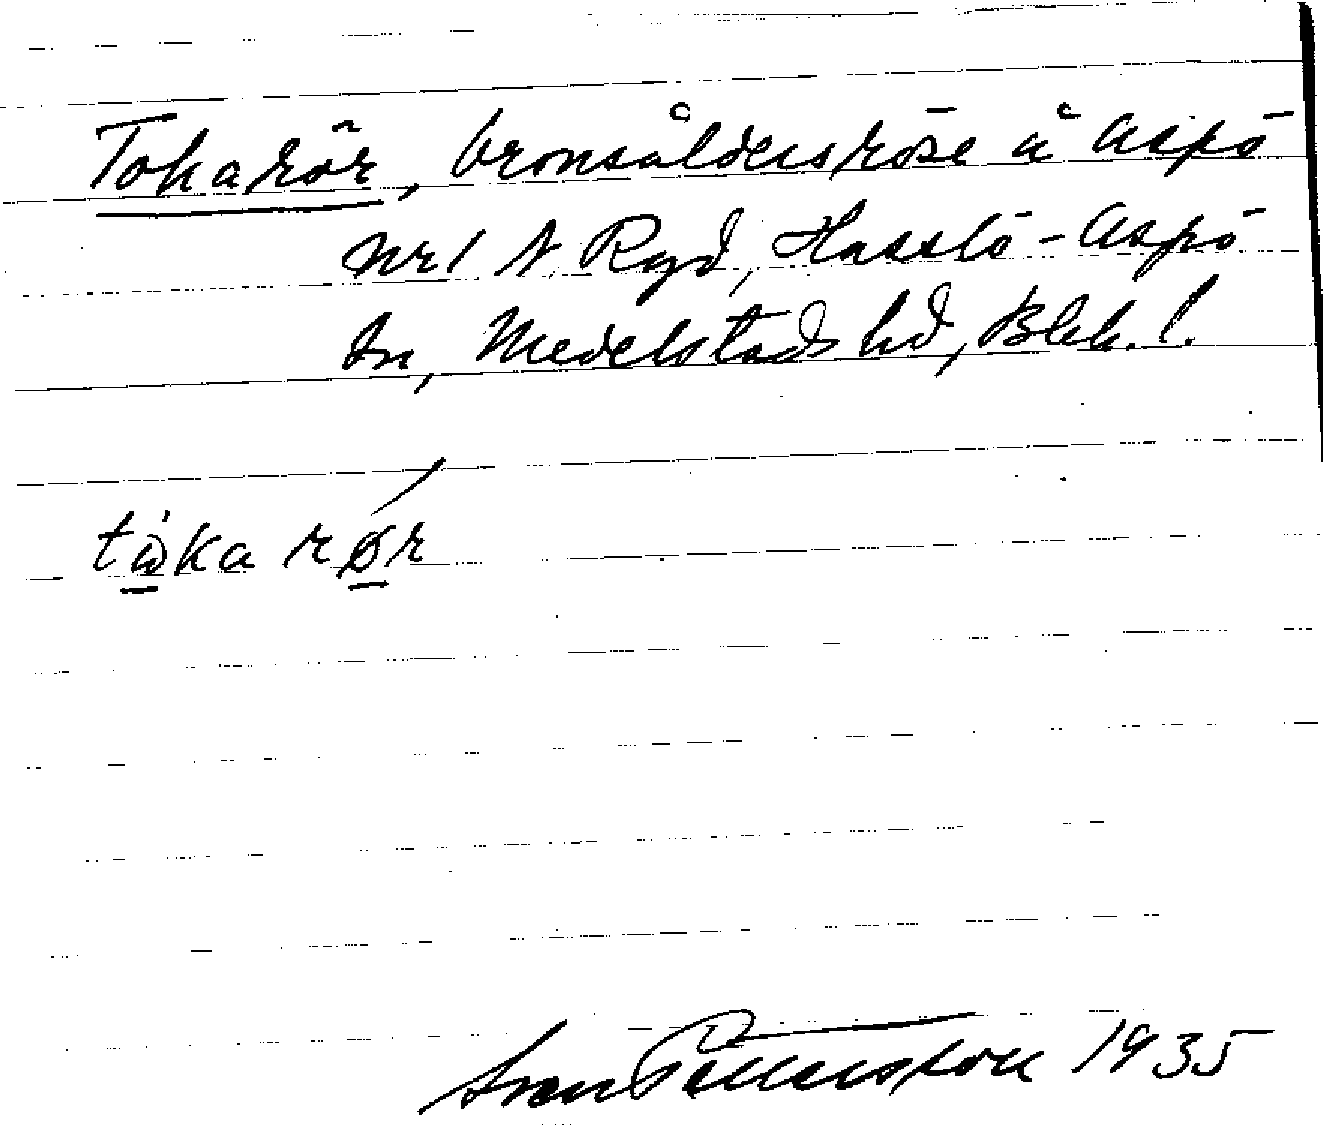 Tokarör, bronsåldersröse å Aspö
nr 1 N Ryd, Hasslö-Aspö
sn, Medelstads hd, Blek. l.
tὼ̲ka rǿ̲r
Sven Pettersson 1935